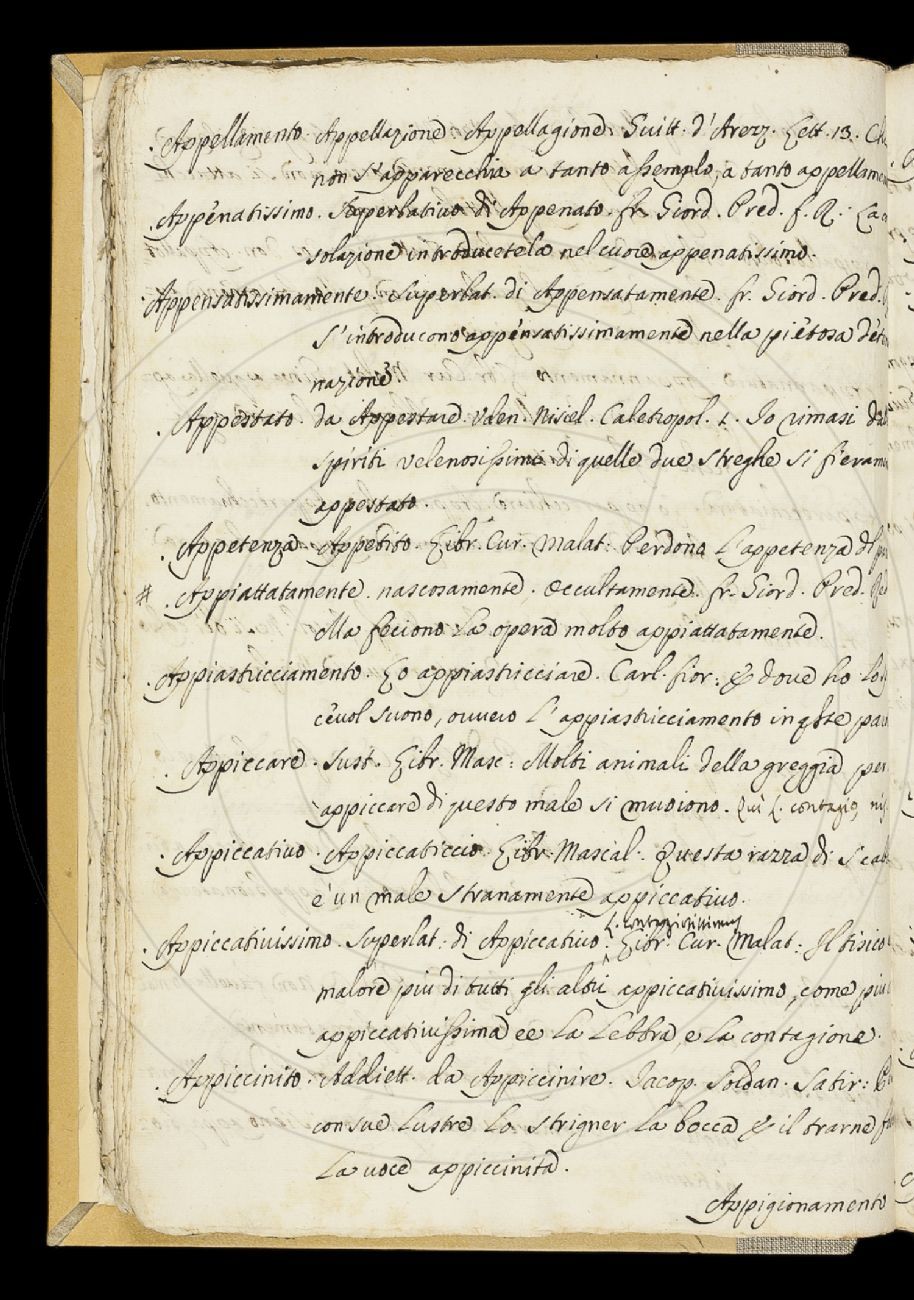 . Appellamento. Appellazione. Appellagione. Guitt. d'Arezz. Lett. 13.
non s'apparecchia a tanto assemplo, a tanto appellame
. Appenatissimo. Superlativo di Appenato. fr. Giord. Pred. f. R.
solazione introducetela nel cuore appenatissimo.
. Appensatissimamente. Superlat. di Appensatamente. fr. Giord. Pred.
S'introducono appensatissimamente nella pietosa
nazione
. Appestato. da Appestare. Uden. Nisiel. Caletropol. 1. Io rimasi
spiriti velenosissimi di quelle due streghe si fieram
appestato.
. Appetenza. Appetito. Libr. Cur. Malat: Perdono l'appetenza del
# . Appiattatamente. nascosamente. occultamente. fr. Giord. Pred.
Ma feciono la opera molto appiattatamente.
. Appiastricciamento. Lo appiastricciare. Carl. fior: & dove ho
cevol suono, ovvero l'appiastricciamento in qste
. Appiccare. Sust. Libr. Masc: Molti animali della greggia per
appiccare di questo male si muoiono. Qui L. contagio,
. Appiccativo. Appiccaticcio. Libr. Mascal. Questa razza di Scab
è un male stranamente appiccativo.
L. contagiosissimus
. Appiccativissimo. Superlat: di Appiccativo. Libr. Cur. Malat: Il tisico
malore piu di tutti gli altri appiccativissimo, come piu
appiccativissima ee la Lebbra, e la contagione.
. Appiccinito. Addiett. da Appiccinire. Jacop. Soldan. Satir:
con sue lustre lo strigner la bocca & il trarne
la voce appiccinita.
Appigionamento